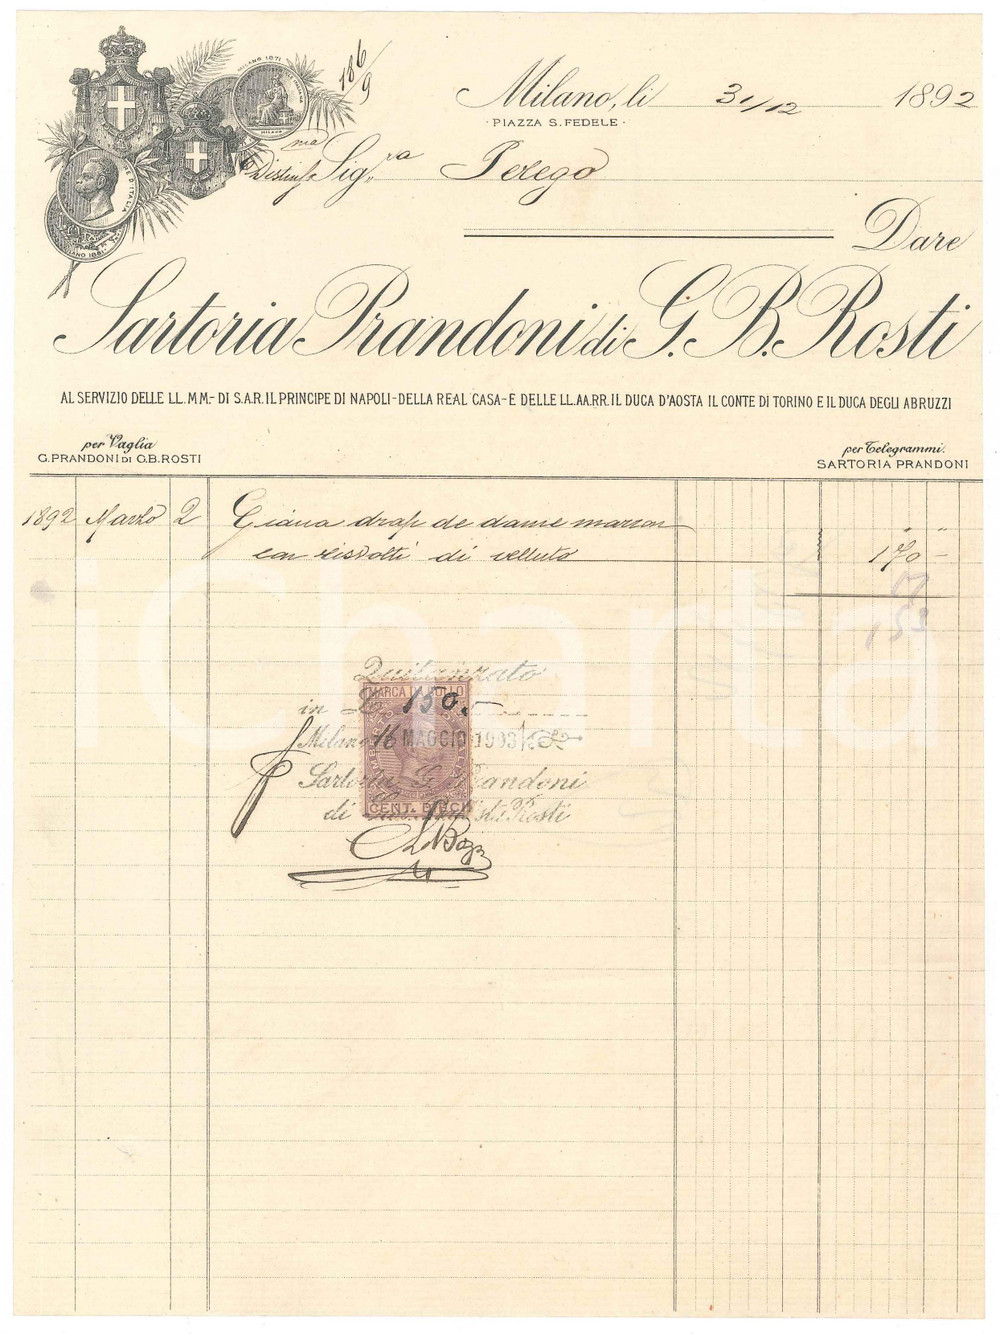 186
9
MILANO 1871
MILANO
RE D'ITALIA
MILANO 1881
Milano, li 31/12 1892
PIAZZA S. FEDELE
Distint.ma Sig.ra Perego
Dare
Sartoria Prandoni di G. B. Rosti
AL SERVIZIO DELLE LL. MM.- DI S.A.R. IL PRINCIPE DI NAPOLI-DELLA REAL CASA-E DELLE LL.AA.RR. IL DUCA D'AOSTA IL CONTE DI TORINO E IL DUCA DEGLI ABRUZZI
per Vaglia
G. PRANDONI DI G.B. ROSTI
per Telegrammi.
SARTORIA PRANDONI
1892 Marzo 2 drap de dame marron
con risvolti di velluto 170 -
17
153
iCharta
Quitanzato
MARCA DA BOLLO
in L. 150.-
Milano 16 MAGGIO 1893
Sartoria G. Prandoni
CENT. DIECI
di Rosti